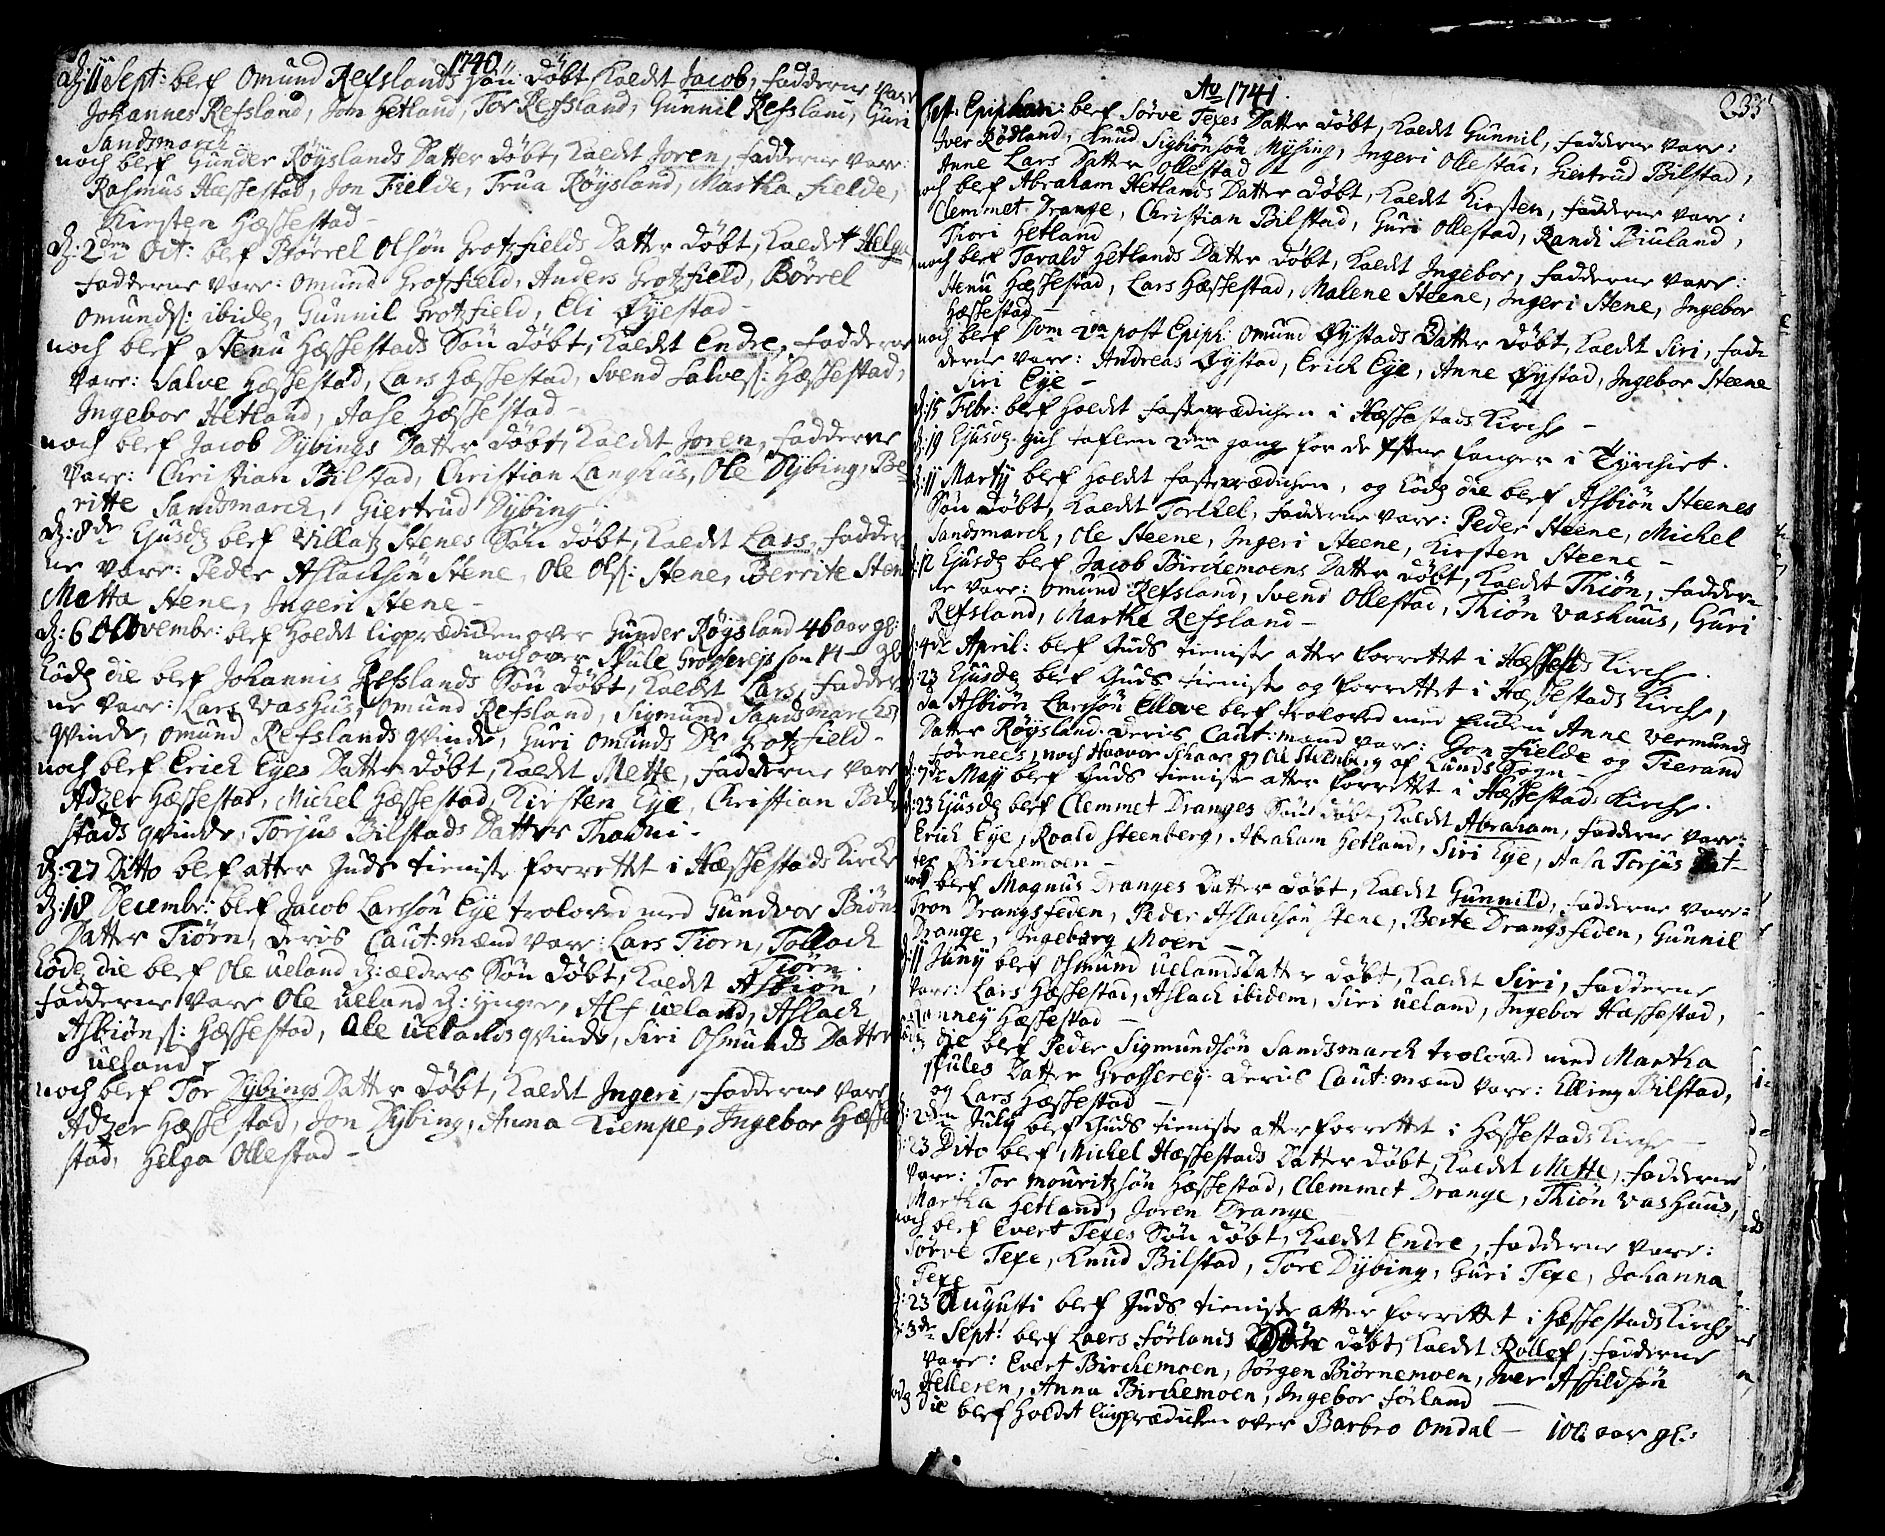 1740
d: 11 Sept: blef Omund Refslands Søn døbt, Kaldet Jacob, fadderne vare
Johannes Refsland, Jon Hetland, Tor Refsland, Gunnil Refsland, Guri
Sandsmarch
noch blef Gunder Røyslands Datter døbt, kaldet Joren, fadderne vare:
Rasmus Hæssestad, Jon Fielde, Trua Røysland, Martha fielde,
Kirsten Hæssestad -
d: 2den Oct: blef Børrel Olsøn Grotzfields Datter døbt, kaldet Helga
fadderne vare: Omund Grotzfield, Anders Grotzfield, Børrel
Omunds: ibid, Gunnil Grotzfield, Eli Øyestad -
noch blef Stenu Hæssestads Søn døbt, kaldet Endre, fadderne
vare: Salve Hæssestad, Lars Hæssestad, Svend Salves: Hæssestad,
Ingebor Hetland, Aase Hæssestad -
noch blef Jacob Dybings Datter døbt, kaldet Joren, fadderne
vare: Christian Bilstad, Christian Langhus, Ole Dybing, Be
ritte Sandsmarch, Giertrud Dybing.
d: 8de Ejusd: blef Villatz Stenes Søn døbt, kaldet Lars, fadder
ne vare: Peder Aslachsøn Stene, Ole Ols: Stene, Berrite Stene
Metta Stene, Ingeri Stene -
d: 6 Novembr: blef holdt ligprædicken over Gunder Røysland 46 aar gl:
noch over Skule Grosserejs son 14 - gl
Eod: die blef Johannis Refslands Søn døbt, kaldet Lars, fadder
ne vare: Lars Vashus, Omund Refsland, Sigmund Sandsmarchs
qvinde, Omund Refslands qvinde, Guri Omunds Dr Grotzfield -
noch blef Erich Eyes Datter døbt, kaldet Mette, fadderne vare
Adzer Hæssestad, Michel Hæssestad, Kirsten Eye, Christian Bil
stads qvinde, Torjus Bilstads Datter Thorni -
d: 27 Ditto blef atter Guds tieniste forrettet i Hæssestads Kirche
d: 18 Decembr: blef Jacob Larssøn Eye troloved med Gundvor Biøns
Datter Tiørn, deris Caut: mænd vare: Lars Tiorn, Tollach
Tiørn.
Eod: die blef Ole Ueland d: ælders Søn døbt, kaldet Asbiøn,
fadderne vare Ole Ueland d: ynger, Alf Ueland, Aslach
Asbiøns: Hæssestad, Ole Uelands qvinde, Siri Osmunds Datter
Ueland.
noch blef Tor Dybings Datter døbt, kaldet Ingeri, fadderne vare
Adzer Hæssestad, Jon Dybing, Anna Kiempe, Ingebor Hæsse
stad, Helga Ollestad -
Ao 1741.
233
Fest. Epiphan: blef Sørve Texes Datter døbt, kaldet Gunnil, fadderne vare:
Iver Rødland, Knud Sigbiønsøn Mysing, Ingeri Ollestad, Giertrud Bilstad,
Anne Lars Datter Ollestad
noch blef Abraham Hetlands Datter døbt, kaldet Kirsten, fadderne vare:
Clemmet Drange, Christian Bilstad, Guri Ollestad, Randi Biuland,
Thori Hetland
noch blef Tarald Hetlands Datter døbt, kaldet Ingebor, fadderne vare:
Stenu Hæssestad, Lars Hæssestad, Malene Steene, Ingeri Stene, Ingebor
Hæssestad -
noch blef Dom 2da post Epiph: Omund Øystads Datter døbt, kaldet Siri, fad-
derne vare: Andreas Øystad, Erich Eye, Anne Øystad, Ingebor Steene
Siri Eye -
d: 15 Febr: blef holdt fasteprædichen i Hæssestads Kirche -
d: 19 Ejusd: gich taflen 2den gang for de fangne i Tyrchiet.
d: 11 Martij blef holdt fasteprædichen, og Eod: die blef Asbiøn Steenes
Søn døbt, kaldet Torkel, fadderne vare: Peder Steene, Michel
Sandsmarck, Ole Steene, Ingeri Steene, Kirsten Steene -
d: 12 Ejusd: blef Jacob Birckemoens Datter døbt, kaldet Thiøn, fadder
ne vare: Omund Refsland, Svend Ollestad, Thiøn Vashuus, Guri
Refsland, Marthe Refsland -
d: 4de April: blef Guds tieniste atter forrettet i Hæssestds Kirche.
d: 23 Ejusd: blef Guds tieniste og forrettet i Hæssestads Kirche,
da Asbiørn Larssøn Elleve blef troloved med Enken Anne Vermunds
Datter Røysland. deris Caut: mænd vare: Jon Fielde og Tierand
Førnees, noch Haavor Schaar og Ole Steenberg af Lunds Sogn
d: 7de Maij blef Guds tieniste atter forrettet i Hæssestads Kirche.
d: 23 Ejusd: blef Clemmet Dranges Søn døbt, kaldet Abraham, fadderne vare:
Erich Eye, Roald Steenberg, Abraham Hetland, Siri Eye, Aasa Torjus Dat-
ter Birckemoen -
noch blef Magnus Dranges Datter døbt, kaldet Gunnild, fadderne vare:
Tron Drangsfeden, Peder Aslachsøn Stene, Berte Drangsfeden, Gunnil
Drange, Ingeborg Moen -
d: 11 Juny blef Osmund Uelands Datter døbt, kaldet Siri, fadderne
vare: Lars Hæssestad, Aslach ibidem, Siri Ueland, Ingebor Hæssestad,
Ranney Hæssestad -
Eod: die blef Peder Sigmundsøn Sandsmarck troloved med Martha
Skules Datter Grosserey. deris Caut: mænd vare: Elling Bilstad,
og Lars Hæssestad -
d: 2den July blef Guds tieniste atter forrettet i Hæssestads Kirche -
d: 23 Dito blef Michel Hæssestads Datter døbt, kaldet Mette, fadderne
vare: Tor Mouritzsøn Hæssestad, Clemmet Drange, Thiøn Vashuus,
Martha Hetland, Joren Drange -
noch blef Evert Texes Søn døbt, kaldet Endre, fadderne vare:
Sørve Texe, Knud Bilstad, Tore Dybing, Guri Texe, Johanna
Texe
d: 23 Augusti blef Guds tieniste atter forrettet i Hæssestads Kirche
d: 3de Sept: blef Laers Førlands døbt, kaldet Rollef, fadderne
vare: Evert Birckemoen, Jørgen Biørnemoen, Iver Askildsøn
Helleren, Anna Birckemoen, Ingebor Førland -
Eod: die blef holdt ligprædicken over Barbro Omdal - 100 aar gl: